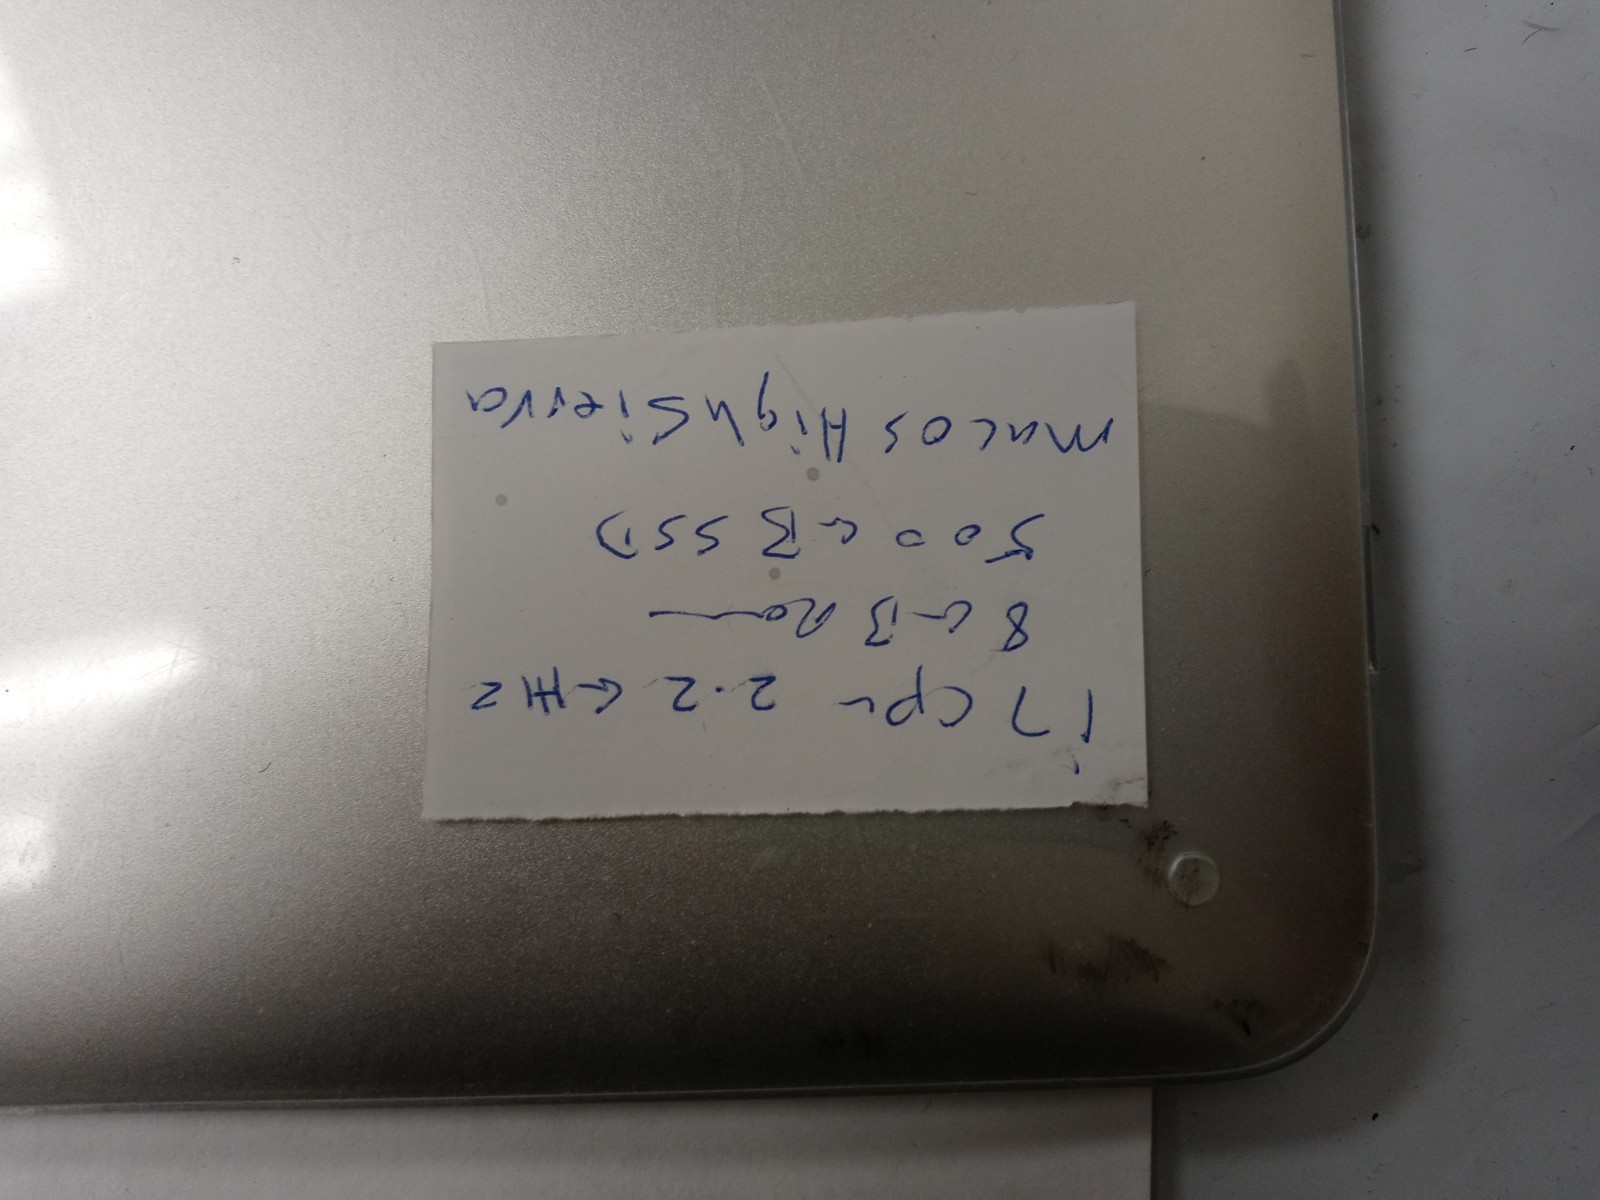 i7 cpu 2.2 GHz
8 GB Ram
500 GB SSD
Macos High Sierra